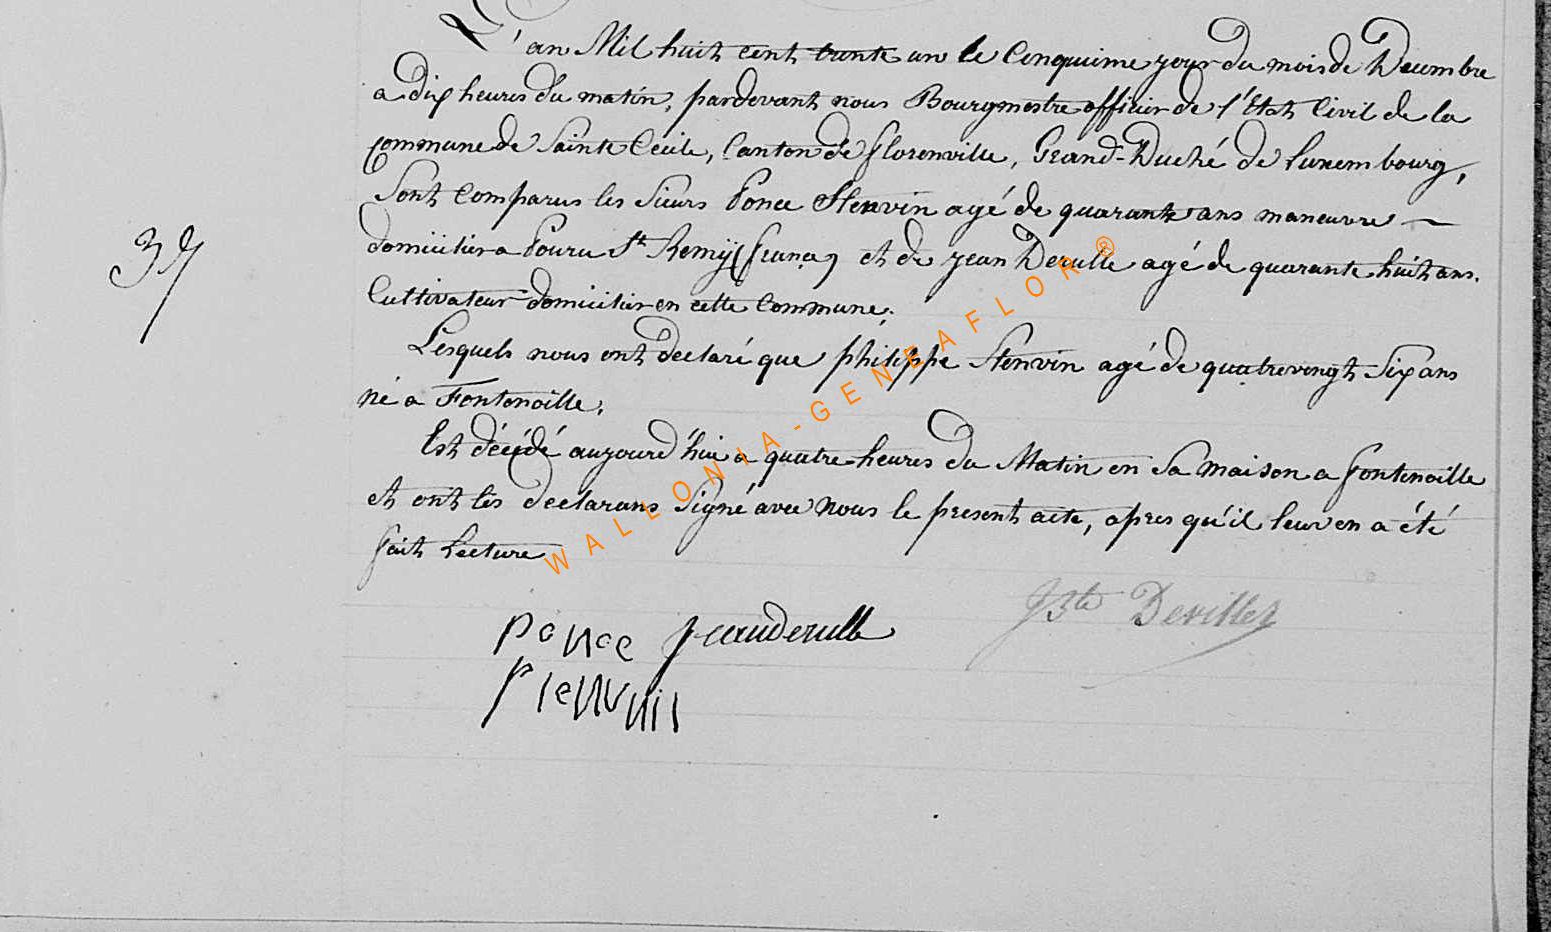 L'an Mil huit cent trente un le Cinquieme jour du mois de Decembre
a dix heures du matin, pardevant nous Bourgmestre officier de l'Etat Civil de la
Commune de Sainte Cécile, Canton de florenville, Grand-Duché de Luxembourg,
Sont Comparus les Sieurs Ponce Stenvin agé de quarante ans maneuvre
domicilier a Pouru St Remÿ (france) et de jean Derulle agé de quarante huit ans.
Cultivateur domicilier en cette Commune;
37
Lesquels nous ont declaré que philippe Stenvin agé de quatrevingt Six ans
né a Fontenoille,
Est décédé aujourd'hui a quatre heures du Matin en Sa maison a fontenoille
et ont les declarans Signé avec Nous le present acte, apres qu'il leur en a été
fait Lecture
ponce jeanderulle
JBte Devillez
WALLONIA-GENEAFLOR®